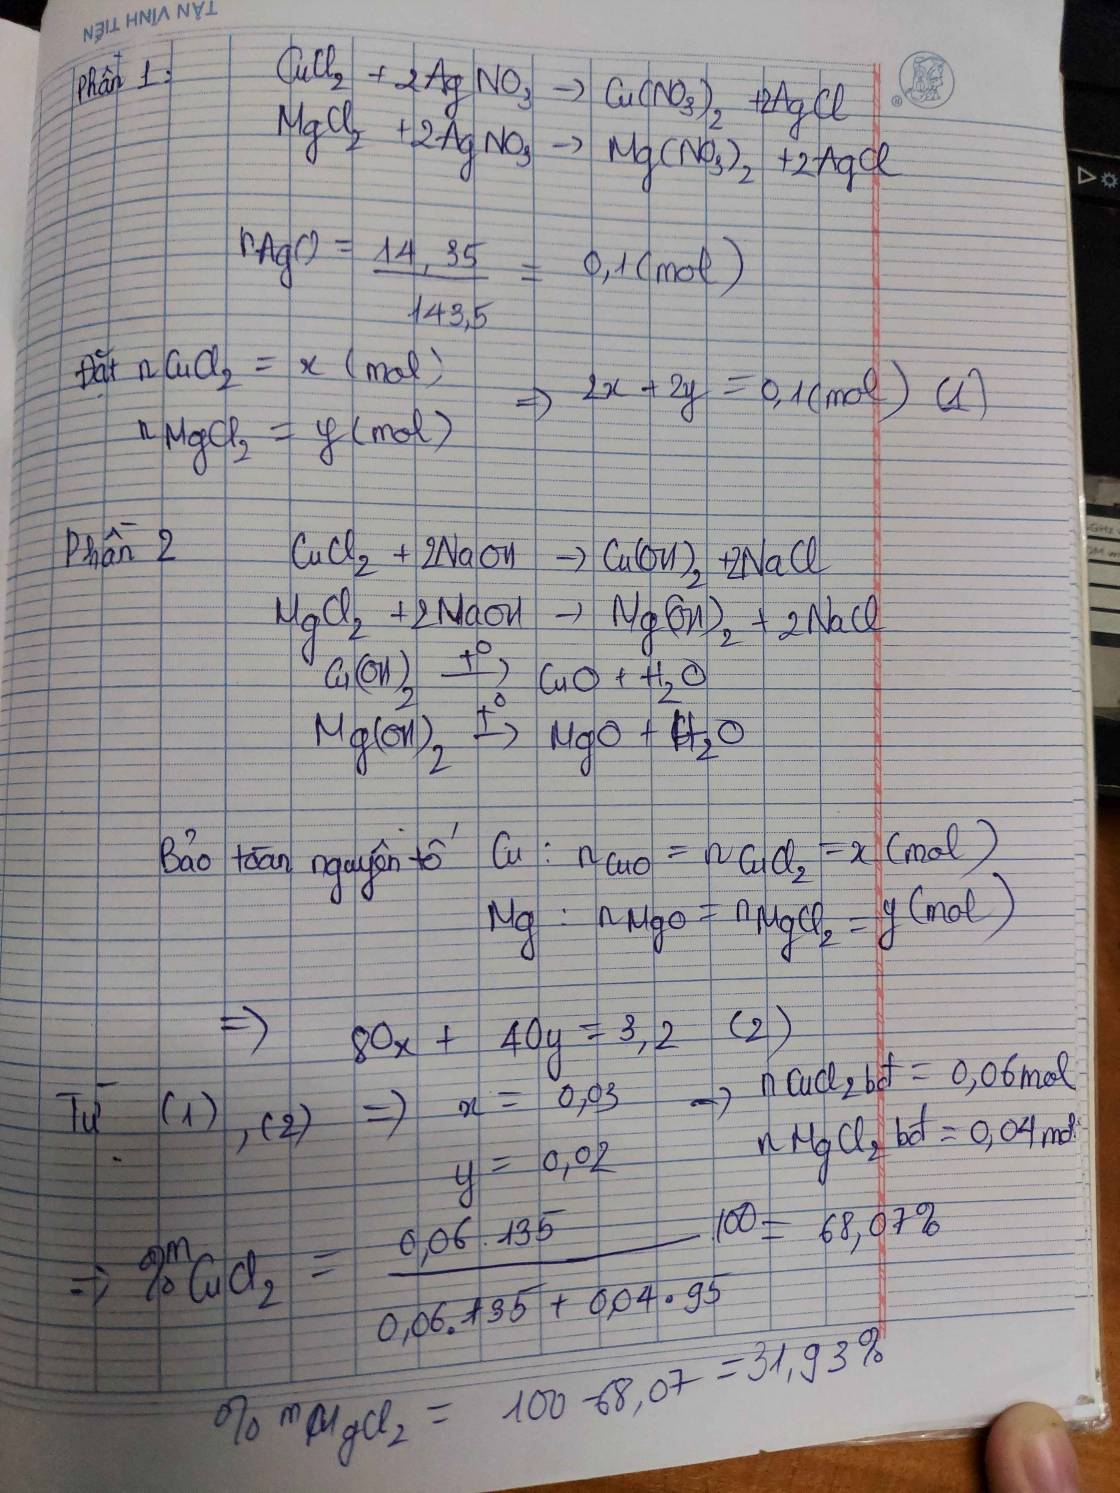 TÂN VĨNH TIẾN
Phần 1: CuCl2 + 2AgNO3 → Cu(NO3)2 + 2AgCl
MgCl2 + 2AgNO3 → Mg(NO3)2 + 2AgCl
nAgCl = 14,35 / 143,5 = 0,1 (mol)
Đặt nCuCl2 = x (mol)
nMgCl2 = y (mol)
=> 2x + 2y = 0,1 (mol) (1)
Phần 2 CuCl2 + 2NaOH → Cu(OH)2 + 2NaCl
MgCl2 + 2NaOH → Mg(OH)2 + 2NaCl
Cu(OH)2 t°→ CuO + H2O
Mg(OH)2 t°→ MgO + H2O
Bảo toàn nguyên tố Cu : nCuO = nCuCl2 = x (mol)
Mg : nMgO = nMgCl2 = y (mol)
=> 80x + 40y = 3,2 (2)
Từ (1), (2) => x = 0,03 → nCuCl2 bđ = 0,06 mol
y = 0,02 nMgCl2 bđ = 0,04 mol
=> %mCuCl2 = 0,06 . 135 / 0,06 . 135 + 0,04 . 95 . 100 = 68,07%
%mMgCl2 = 100 - 68,07 = 31,93%